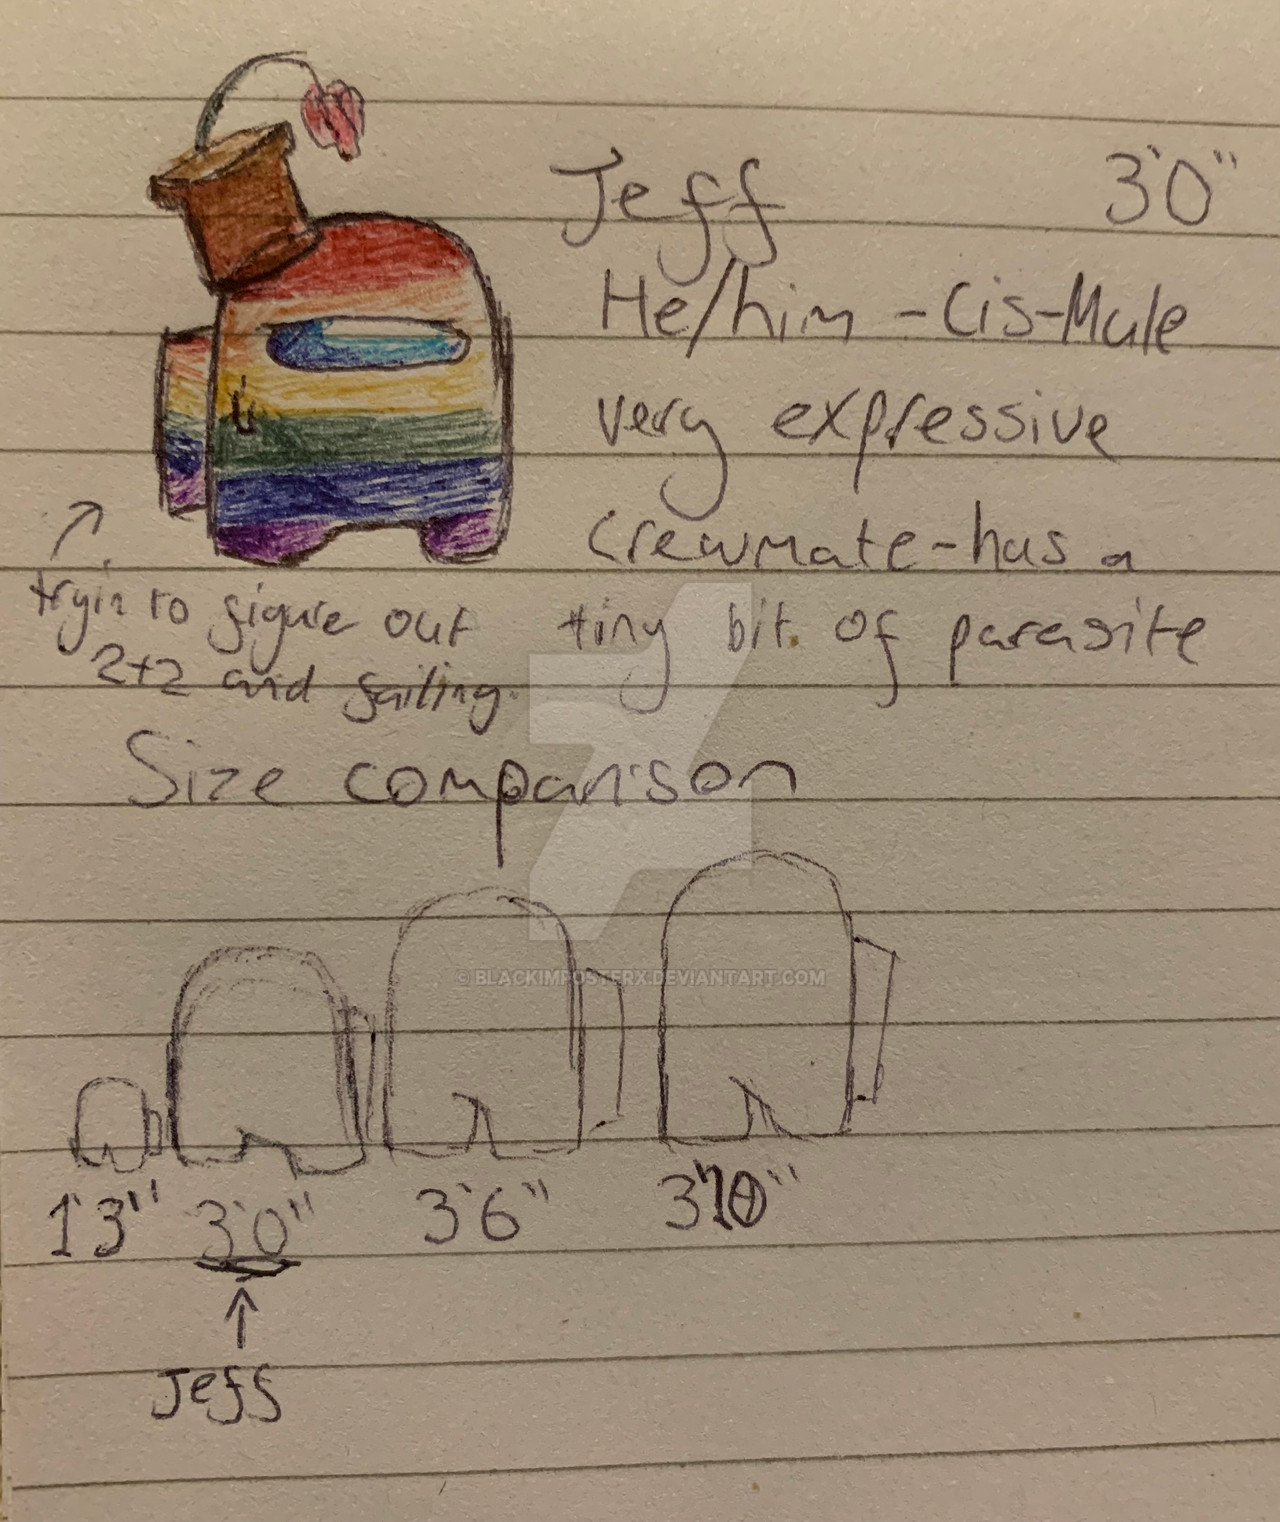 Jeff 3'0"
He/him - Cis-Male
very expressive
crewmate - has a
tiny bit of parasite
tryin to figure out
2+2 and failing.
Size comparison
© BLACKIMPOSTERX.DEVIANTART.COM
1'3" 3'0" 3'6" 3'10"
Jeff